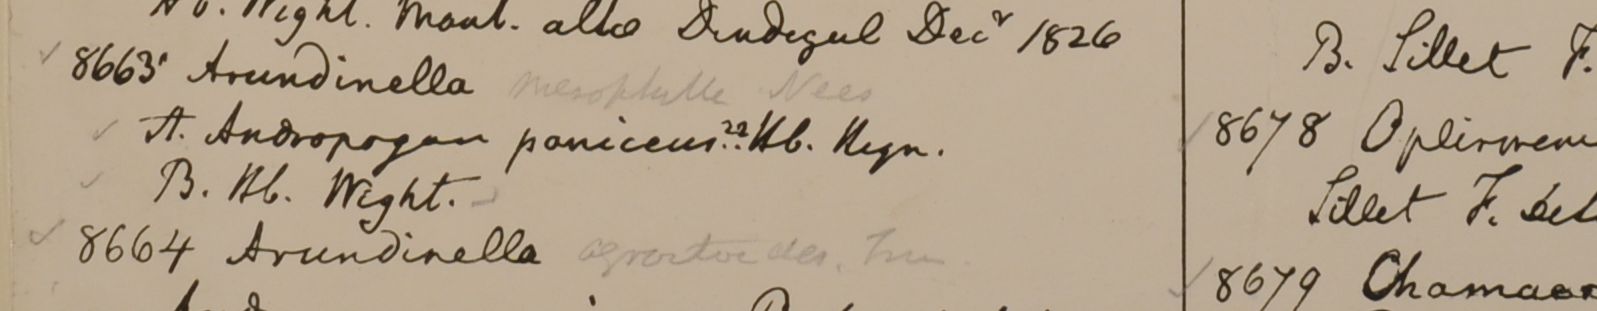 Hb. Wight. Mont. alto Dindegul Decr 1826
8663 Arundinella mesophylla Nees
A. Andropogon paniceus?? Hb. Heyn.
B. Hb. Wight.
8664 Arundinella agrostoides. Trin.
B. Sillet F.
8678 Oplismenu
Sillet F. de
8679 Chamae